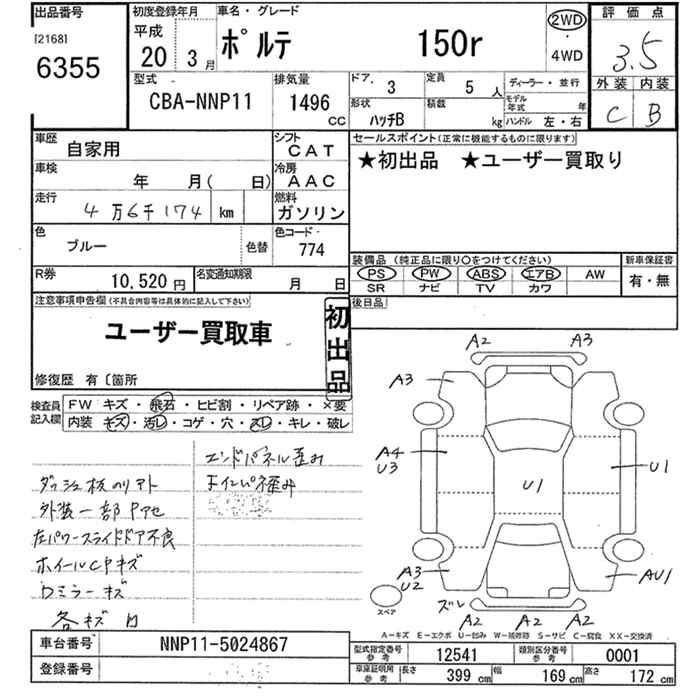 出品番号 初度登録年月 車名・グレード 評価点
[2168] 平成 ポルテ 150r 2WD・4WD 3.5
6355 20 3月
型式 排気量 ドア.3 定員 5人 ディーラー・並行 外装 内装
CBA-NNP11 1496CC 形状 ハッチB 積載 kg モデル年式 年 C B
ハンドル 左・右
車歴 自家用 シフト CAT セールスポイント(正常に機能するものに限ります)
車検 年 月( 日) 冷房 AAC ★初出品 ★ユーザー買取り
走行 4万6千174 km 燃料 ガソリン
色 ブルー 色替 色コード 774
装備品 (純正品に限り〇をつけてください) 新車保証書
R券 10,520円 名変通知期限 月 日 PS PW ABS エアB AW 有・無
SR ナビ TV カワ
注意事項申告欄(不具合内容等は具体的に記入して下さい) 後日品
ユーザー買取車 初出品
修復歴 有〔箇所
検査員記入欄 FW キズ・飛石・ヒビ割・リペア跡・×要
内装 キズ・汚レ・コゲ・穴・スレ・キレ・破レ
エンドパネル歪み
ダッシュ板のリアト
外装一部Pアセ
左パワースライドドア不良
ホイールCPキズ
Dミラーキズ
各キズ
A2 A3
A3
A4 U3 U1 U1
A3 U2 AU1
スペア ズレ A2 A2 A2
A-キズ E-エクボ U-凹み W-補修跡 S-サビ C-腐食 XX-交換済
車台番号 NNP11-5024867 型式指定番号 参考 12541 類別区分番号 参考 0001
登録番号 車庫証明用 参考 長さ 399cm 幅 169cm 高さ 172cm